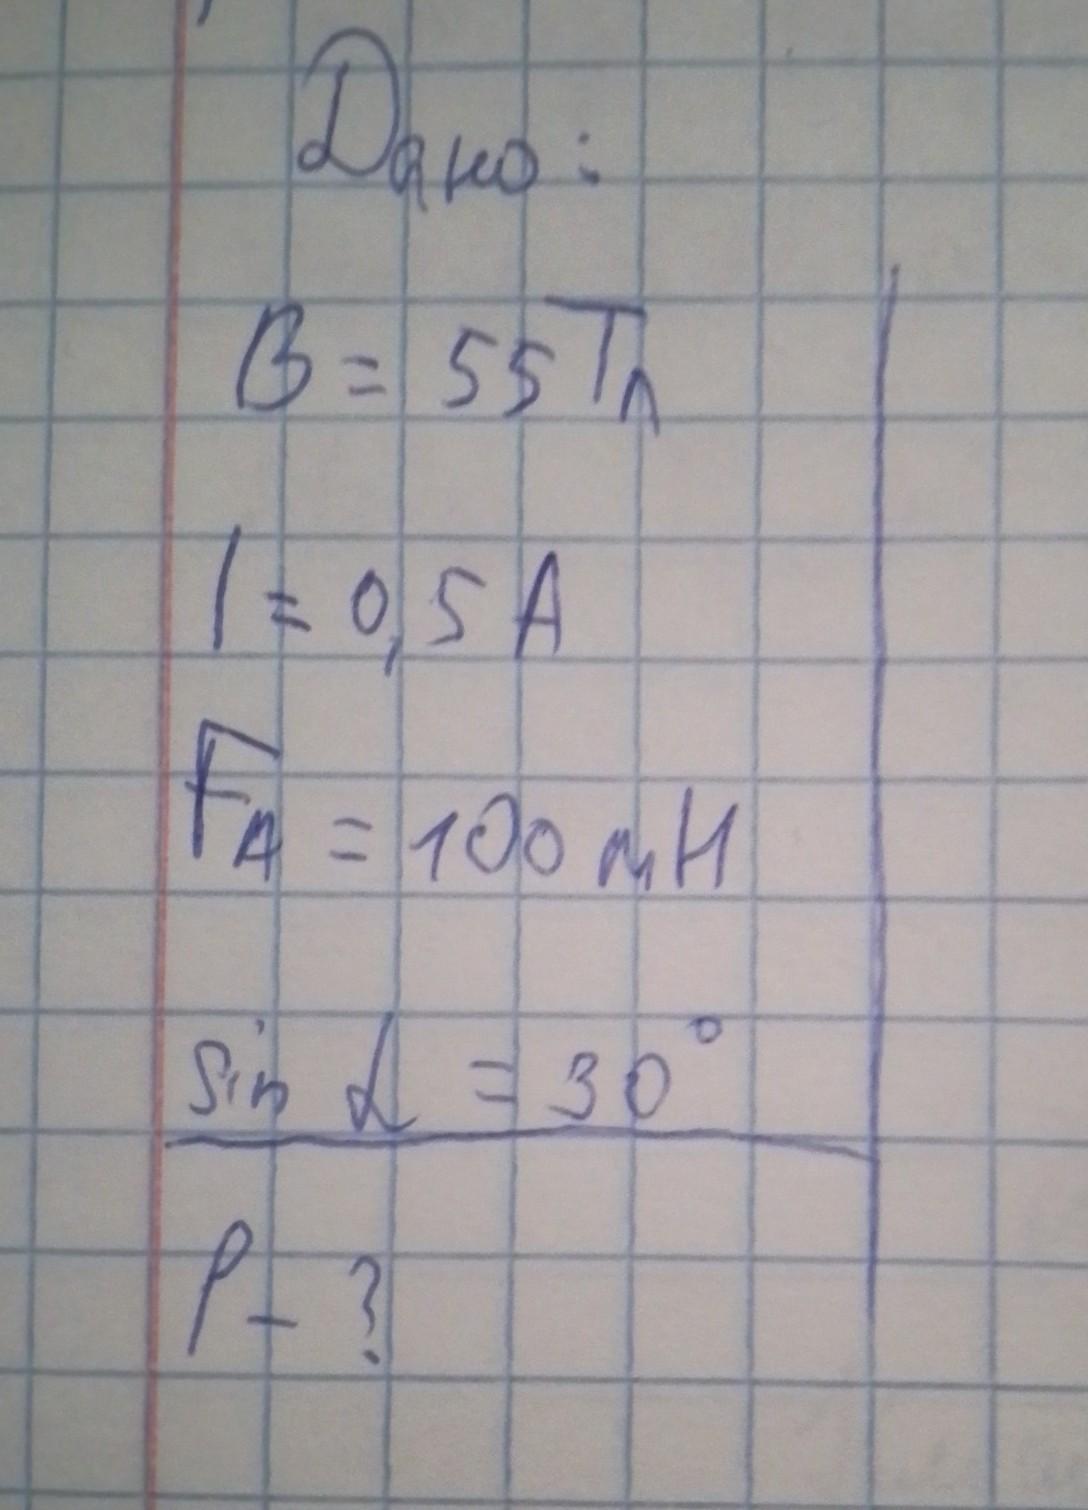 Дано:
B = 55Тл
I = 0,5 A
Fₐ = 100 мН
sin α = 30°
P - ?